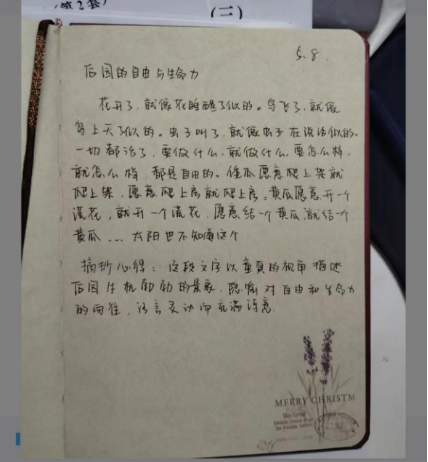 (二)
5.8
后园的自由与生命力
花开了,就像花睡醒了似的。鸟飞了,就像
鸟上天了似的。虫子叫了,就像虫子在说话似的。
一切都活了,要做什么,就做什么。要怎么样,
就怎么样,都是自由的。倭瓜愿意爬上架就
爬上架,愿意爬上房就爬上房。黄瓜愿意开一个
谎花,就开一个谎花,愿意结一个黄瓜就结一个
黄瓜....太阳也不知道这个
摘抄心得:这段文字以童真的视角描述
后园生机勃勃的景象,隐喻对自由和生命力
的向往,语言灵动而充满诗意.
MERRY CHRISTM